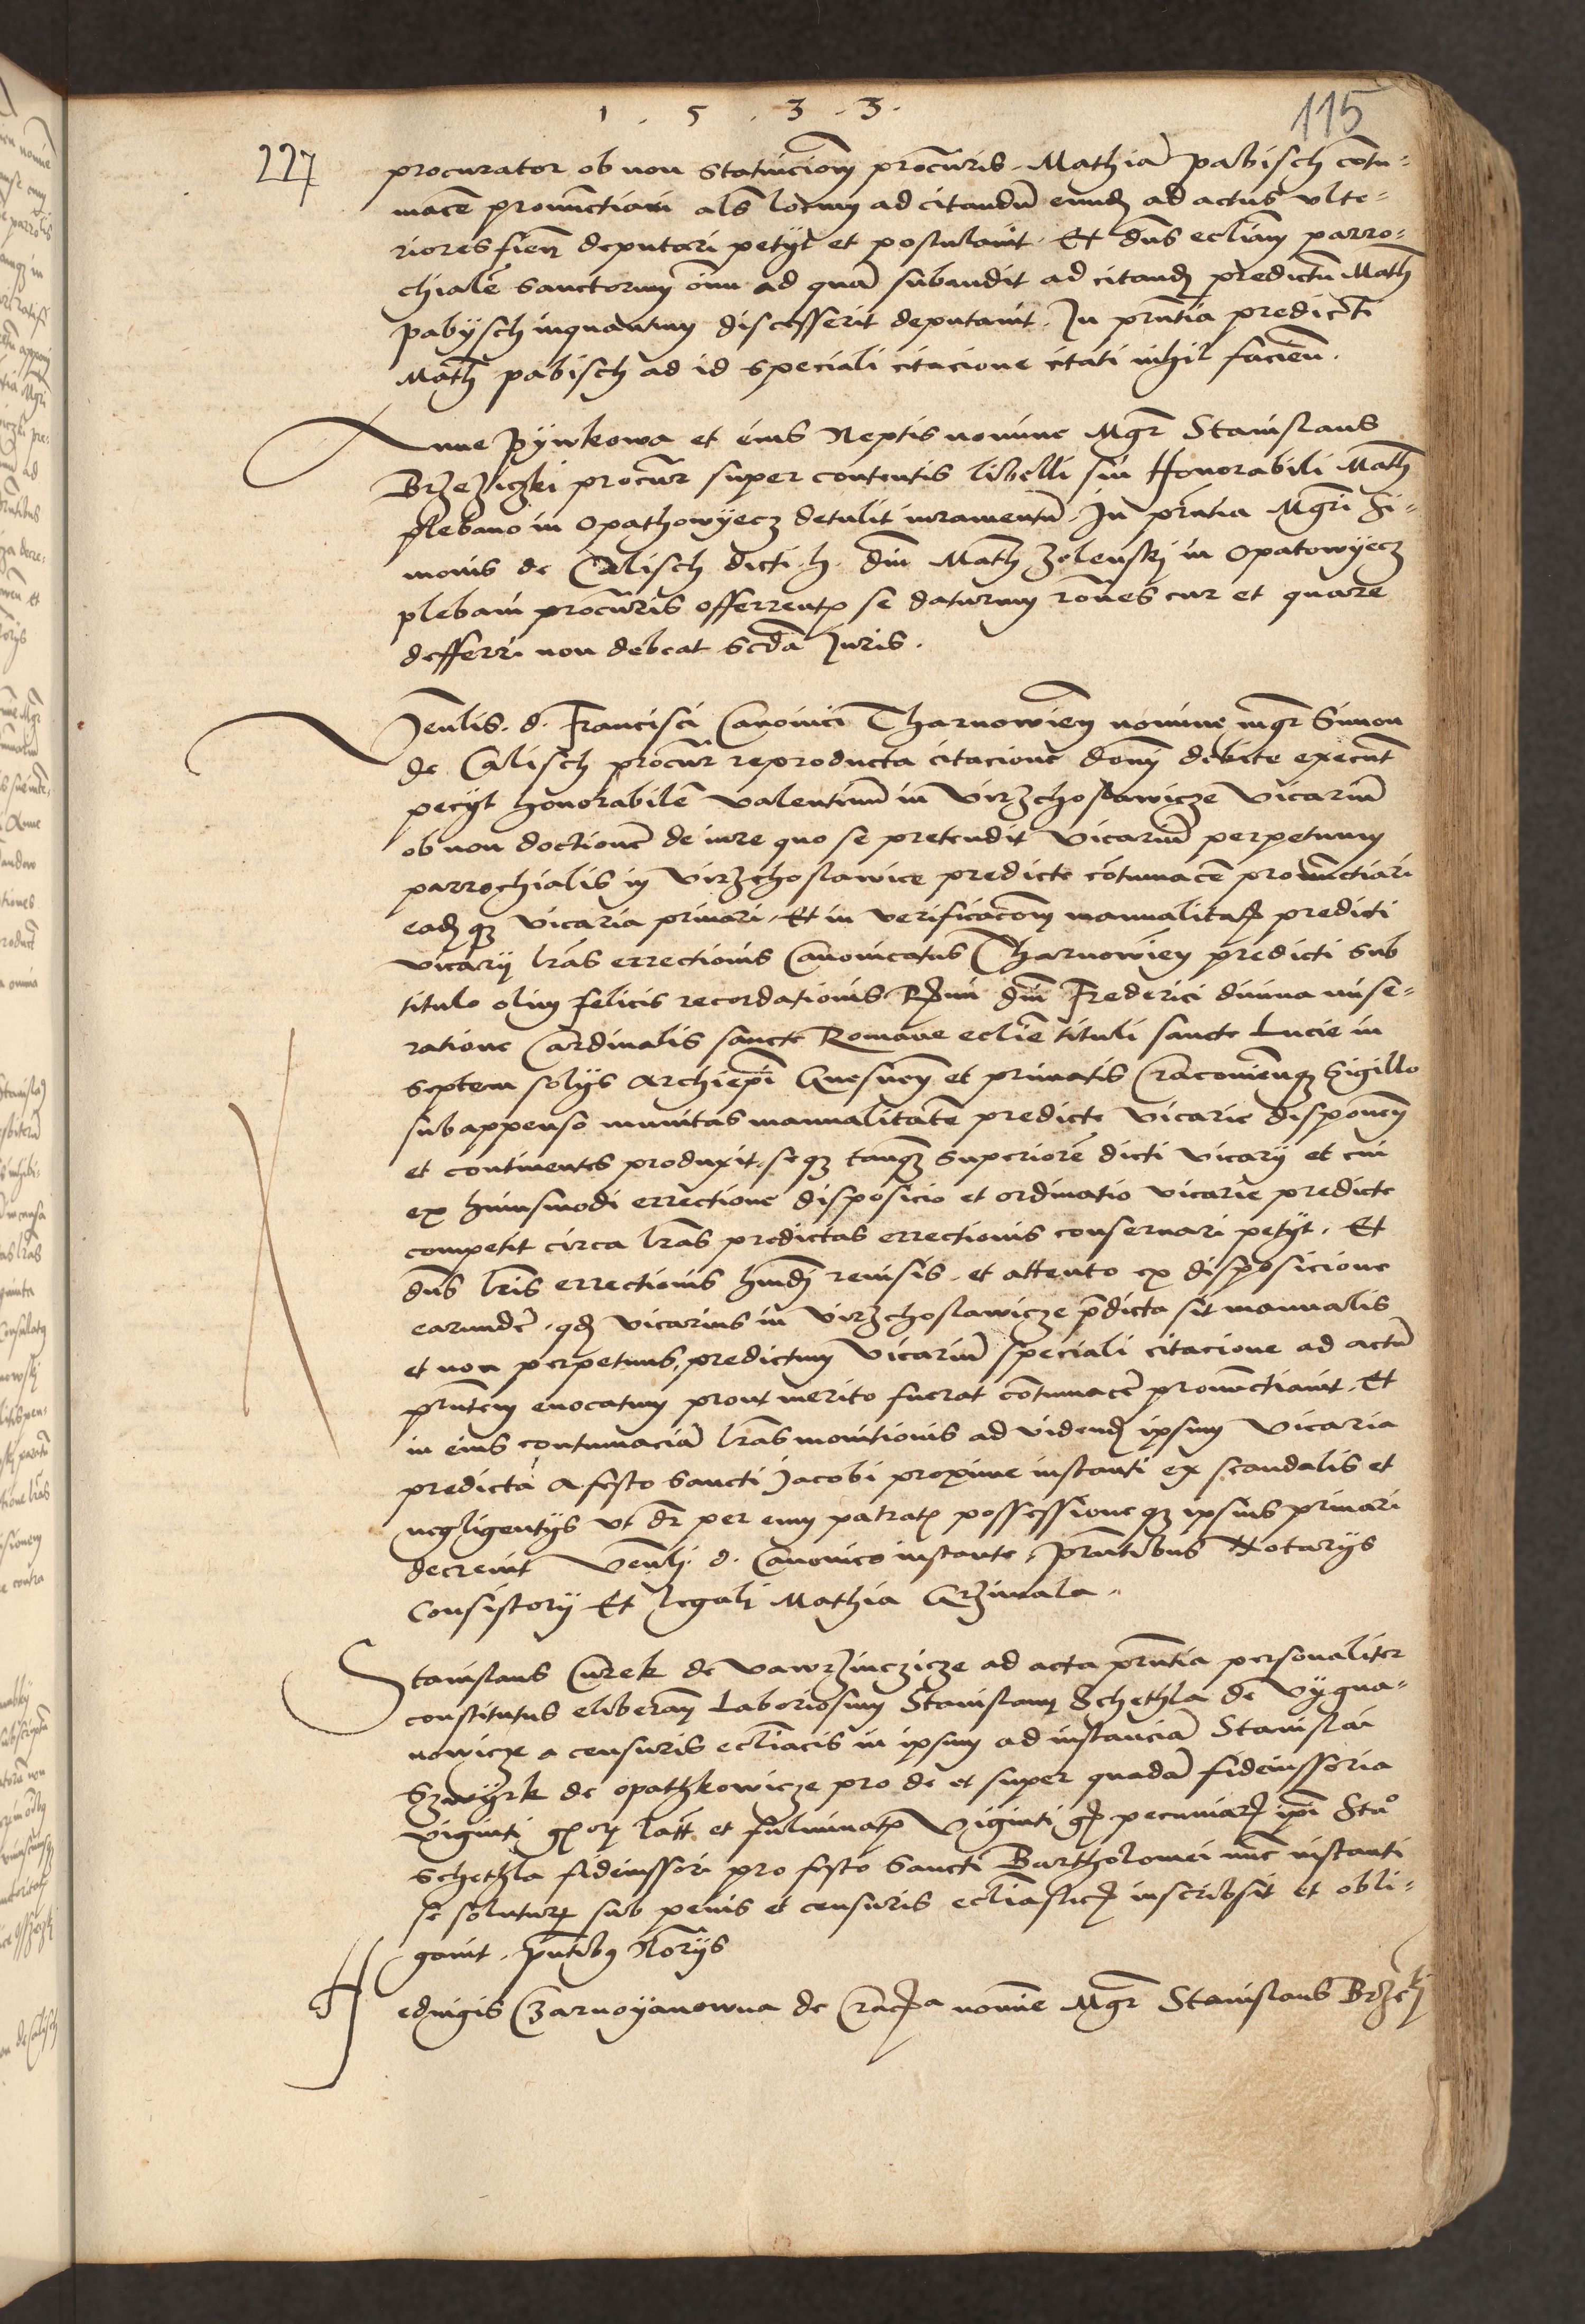 1 . 5 . 3 . 3 .
115
227
procurator ob non statuiciom procuris Mathia pabisch contu=
mace pronunctiari als locum ad citandu eundem ad actus ulte=
riores fien deputari petyt et postulavit. Et dns eccliam parro=
chiale sanctorum oim ad qua subaudit ad citand predictu Math
pabysch inquantum discesserit deputavit. In pntia predicti
Math pabisch ad id speciali citacione citati nihil facien.
Anne Pywkowa et eius Neptis nomine Mgr Stanislaus
Brzeziczki procur super contentis libelli sui Honorabili Math
plebano in Opathowyecz detulit iuramentu. In pntia Mgri Si=
monis de Calisch dicti h. dni Math Zelenskj in Opatowyecz
plebani procuris offerentis se daturum rones cur et quare
defferri non debeat scda Juris.
Venlis. d. Francisci Canonici Tharnowien nomine mgr Simon
de Calisch procur reproducta citacione domj debite execut
pecyt honorabile valentinu in virzchoslawicze vicariu
ob non doctione de iure quo se pretendit vicariu perpetuum
parrochialis in virzchoslawice predicte cotumace pronunctiari
eadque vicaria privari. Et in verificacom manualitatis predicti
vicarij lras errectionis Canonicatus Tharnowien predicti sub
titulo olim felicis recordationis Rmi dni Frederici divina mise=
ratione Cardinalis sancte Romane ecclie tituli sancte Lucie in
septem solijs Archiepi Gnesnen et primatis Cracovienque Sigillo
subappenso munitas manualitate predicte vicarie disponen
et continentes produxit. seque tanquam superiore dicti vicarij et cui
ex huiusmodi errectione disposicio et ordinatio vicarie predicte
competit circa lras predictas errectionis conservari petyt. Et
dns lris errectionis hmdi revisis. et attento ex disposicione
earunde. qd vicarius in virzchoslawicze pdicta sit manualis
et non perpetuus, predictum vicariu speciali citacione ad actu
pntem evocatum prout merito fuerat contumace pronunctiavit. Et
in eius contumacia lras monitionis ad vidend ipsum vicaria
predicta a festo sancti Jacobi proxime instanti ex scandalis et
negligentijs ut dr per eum patratis possessioneque ipsius privari
decrevit venlj. d. Canonico instante. pntibus Notarijs
Consistorij Et legali Mathia Grzimala.
Stanislaus Curek de vawrzinczicze ad acta pntia personaliter
constitutus eliberan laboriosum Stanislaum Schethla de vygna=
nowicze a censuris eccliacis in ipsum ad instancia Stanislai
Szwyrk de opathkowicze pro de et super quada fideiussoria
viginti gr latt et fulminatis viginti gr pecuniar ipi Stao
Schethla fideiussori pro festo sancti Bartholomei nunc instanti
se soluturum sub penis et censuris eccliasticis inscribsit et obli=
gavit. pntibus Norijs
Hedvigis Czarnoyanowna de Cracovia nomine Mgr Stanislaus Brzeski